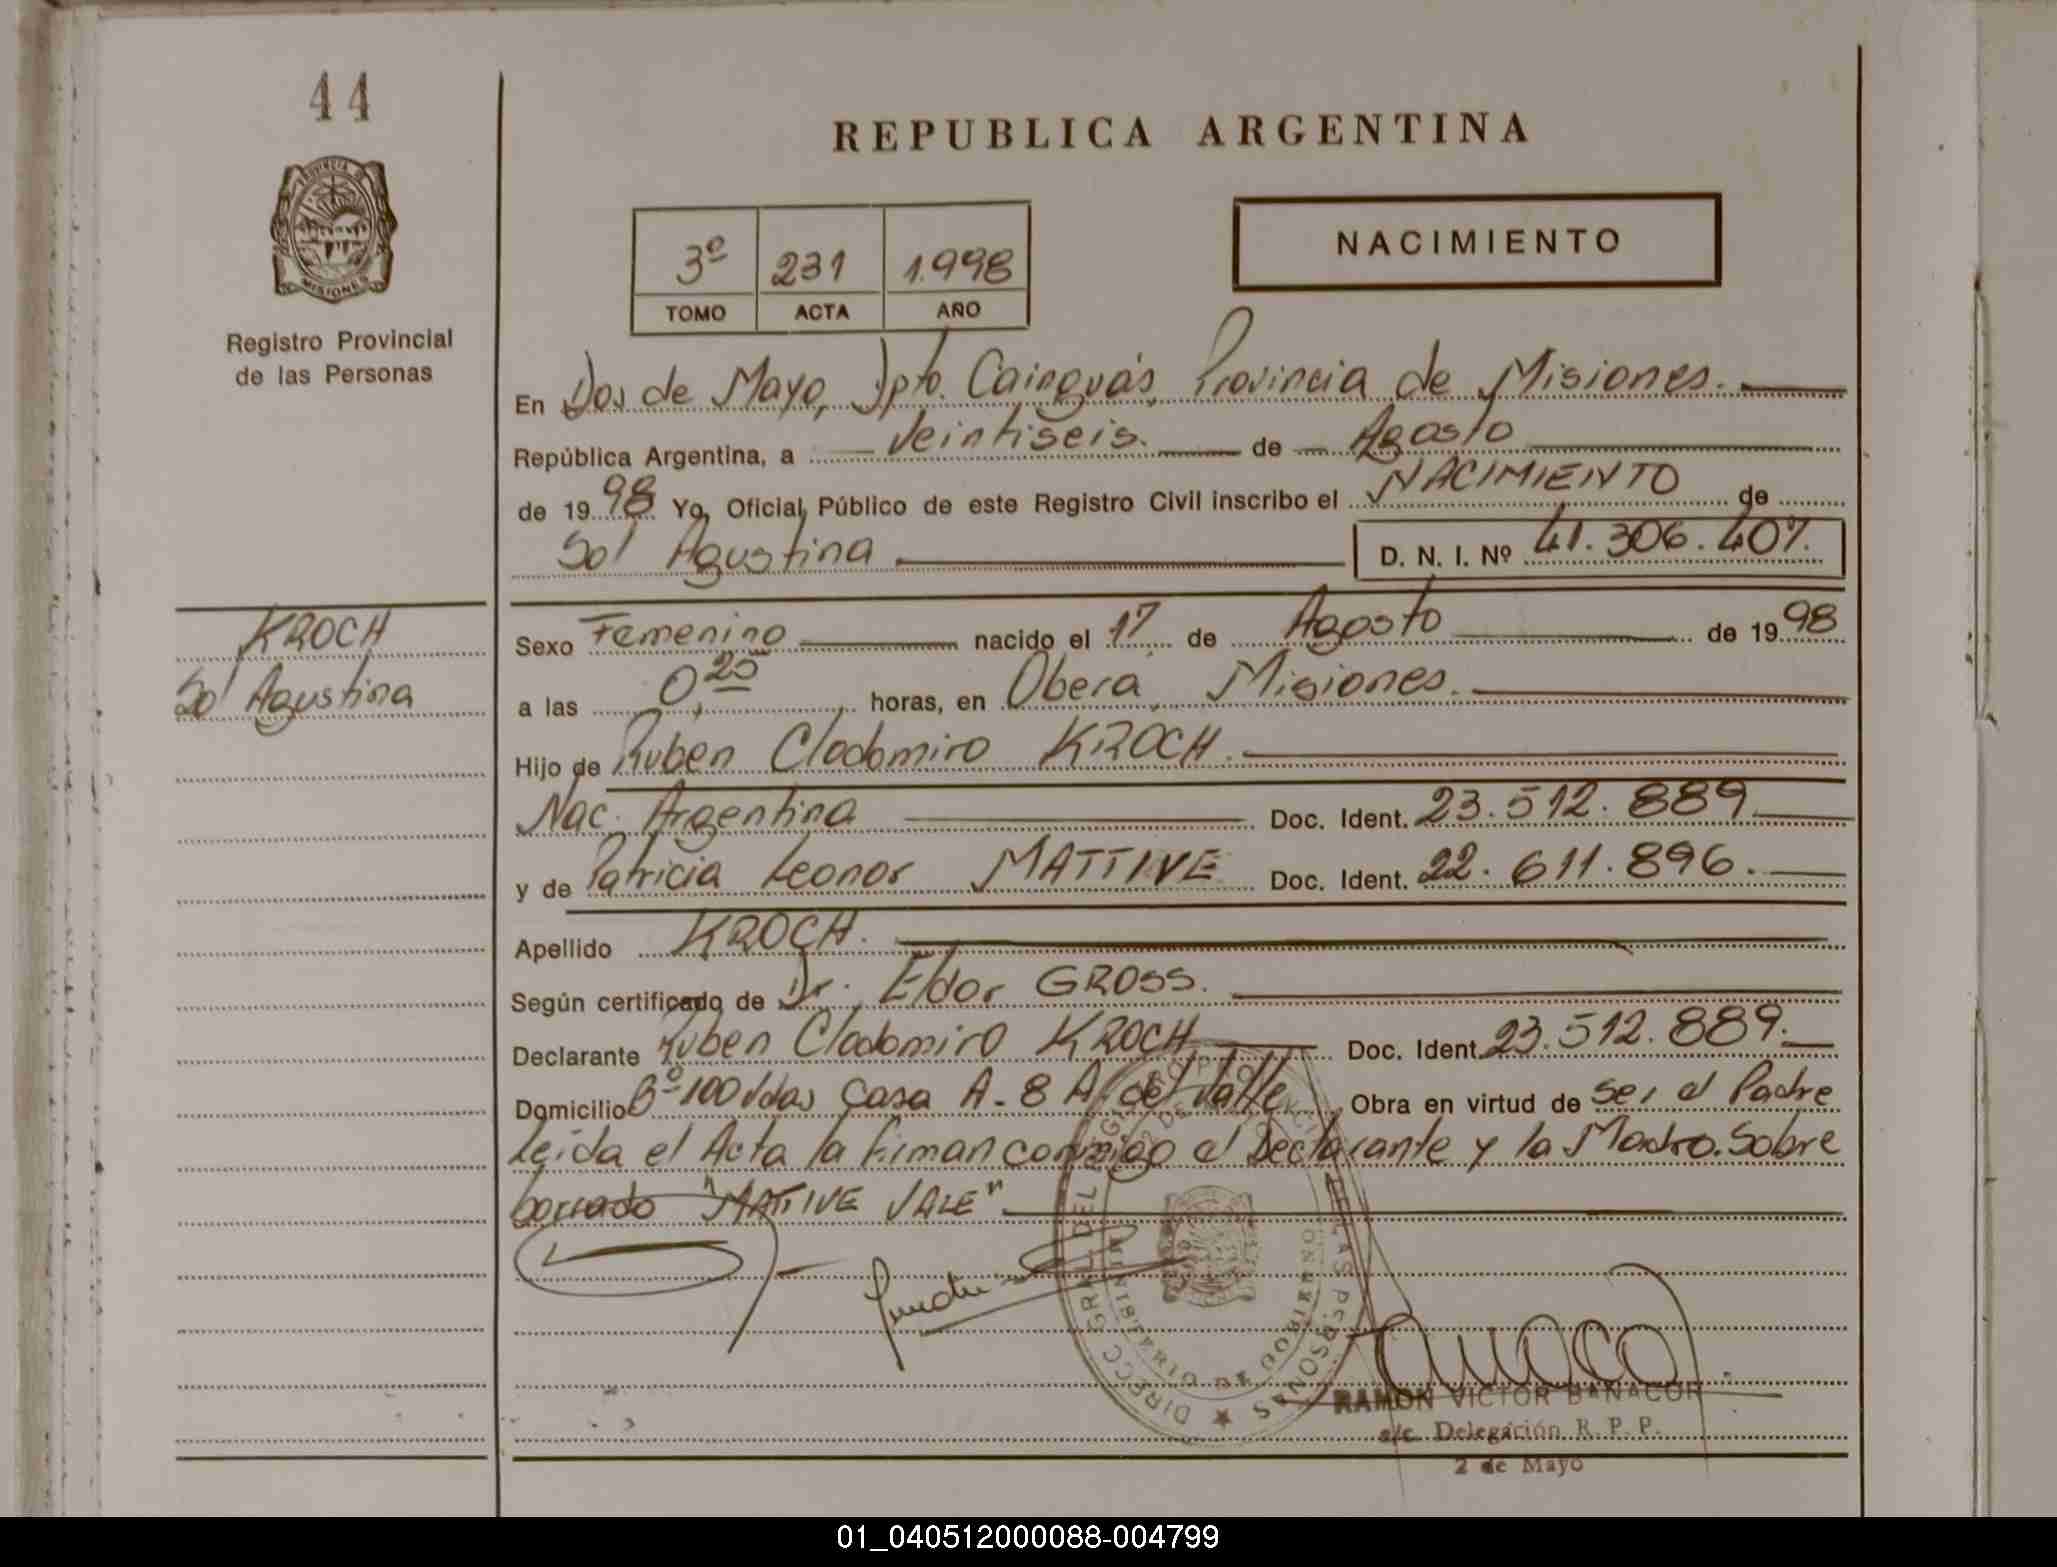 44
REPUBLICA ARGENTINA
PROVINCIA DE
MISIONES
Registro Provincial
de las Personas
NACIMIENTO
3º 231 1.998
TOMO ACTA AÑO
En Dos de Mayo, Dpto. Cainguás Provincia de Misiones.
República Argentina, a Veintiseis. de Agosto
de 1998 Yo, Oficial Público de este Registro Civil inscribo el NACIMIENTO de
Sol Agustina D. N. I. Nº 41.306.407.
KROCH
Sol Agustina
Sexo Femenino nacido el 17 de Agosto de 1998
a las 0,25 horas, en Oberá, Misiones.
Hijo de Ruben Clodomiro KROCH.
Nac. Argentina Doc. Ident. 23.512.889
y de Patricia Leonor MATTIVE Doc. Ident. 22.611.896.
Apellido KROCH.
Según certificado de Dr. Eldor GROSS.
Declarante Ruben Clodomiro KROCH Doc. Ident. 23.512.889.
Domicilio Bº 100 Vdas Casa A-8 A. del Valle Obra en virtud de ser el Padre
Leída el Acta la firman conmigo el Declarante y la Madre. Sobre
borrado "MATTIVE VALE"
DIRECC. GRAL. DEL REGISTRO PROVINCIAL DE LAS PERSONAS
MINISTERIO DE GOBIERNO
RAMON VICTOR BANACOR
a/c. Delegación R. P. P.
2 de Mayo
01_040512000088-004799